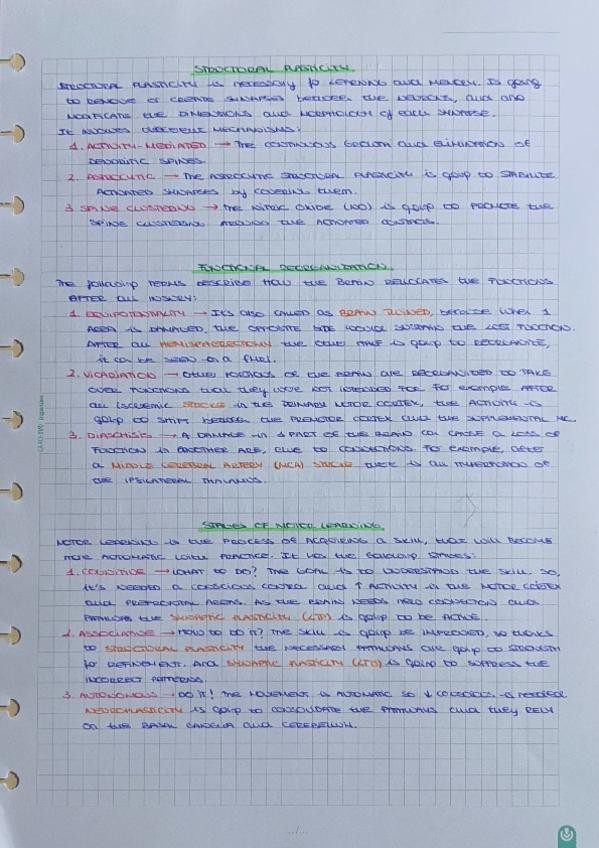 STRUCTURAL PLASTICITY.
STRUCTURAL PLASTICITY is NECESSARY for LEARNING and MEMORY. Is going
to REMOVE or CREATE SYNAPSES between the NEURONS, and also
MODIFICATE the DIMENSIONS and MORPHOLOGY of each SYNAPSE.
It ALLOWS DIFFERENT MECHANISMS:
1. ACTIVITY-MEDIATED → The CONTINUOUS GROWTH and ELIMINATION OF
DENDRITIC SPINES.
2. ASTROCYTIC → The ASTROCYTIC STRUCTURAL PLASTICITY is going to STABILIZE
ACTIVATED SYNAPSES by COVERING them.
3 SPINE CLUSTERING → The NITRIC OXIDE (NO) is going to PROMOTE the
SPINE CLUSTERING AROUND the ACTIVATED
FUNCTIONAL REORGANIZATION.
The following TERMS DESCRIBE HOW the BRAIN RELOCATES the FUNCTIONS
AFTER an INJURY:
1. EQUIPOTENTIALITY → It's also called as BRAIN TWINED, because WHEN 1
AREA is DAMAGED, the OPPOSITE SITE WOULD SUSTAIN the LOST FUNCTION.
AFTER an HEMISPHERECTOMY the OTHER HALF is going to REORGANIZE,
it can be seen in a
2. VICARIATION → OTHER PORTIONS OF the BRAIN are REORGANIZED TO TAKE
OVER FUNCTIONS that they WERE NOT INTENDED FOR. For example AFTER
an ISCHEMIC STOCKS in the PRIMARY MOTOR CORTEX, the ACTIVITY is
going to SHIFT between the PREMOTOR CORTEX and the SUPPLEMENTAL MC.
3. DIASCHISIS → A DAMAGE in 1 PART OF the BRAIN can CAUSE A LOSS OF
FUNCTION in ANOTHER ARE, due to CONNECTIONS. For example, after
a MIDDLE CEREBRAL ARTERY (MCA) STROKE there is an of
the IPSILATERAL THALAMUS.
STAGES OF MOTOR LEARNING.
MOTOR LEARNING is the PROCESS OF ACQUIRING A SKILL, that WILL BECOME
MORE AUTOMATIC WITH PRACTICE. It has the following STAGES:
1. COGNITIVE → WHAT TO DO? The GOAL is to UNDERSTAND the SKILL. So,
it's NEEDED A CONSCIOUS CONTROL and ↑ ACTIVITY in the MOTOR CORTEX
and PREFRONTAL AREAS. AS the BRAIN NEEDS NEW CONNECTION and
PATHWAYS the SYNAPTIC PLASTICITY (LTP) is going to be ACTIVE.
2. ASSOCIATIVE → HOW TO DO IT? The SKILL is going be IMPROVED, so THANKS
to STRUCTURAL PLASTICITY the NECESSARY PATHWAYS are going to STRENGTH
for REFINEMENT. And SYNAPTIC PLASTICITY (LTD) is going to SUPPRESS the
INCORRECT PATTERNS.
3. AUTONOMOUS → DO IT! The MOVEMENT is AUTOMATIC so ↓ CONSCIOUS is NEEDED.
NEUROPLASTICITY is going to CONSOLIDATE the PATHWAYS and they RELY
ON the BASAL GANGLIA and CEREBELLUM.
.../...